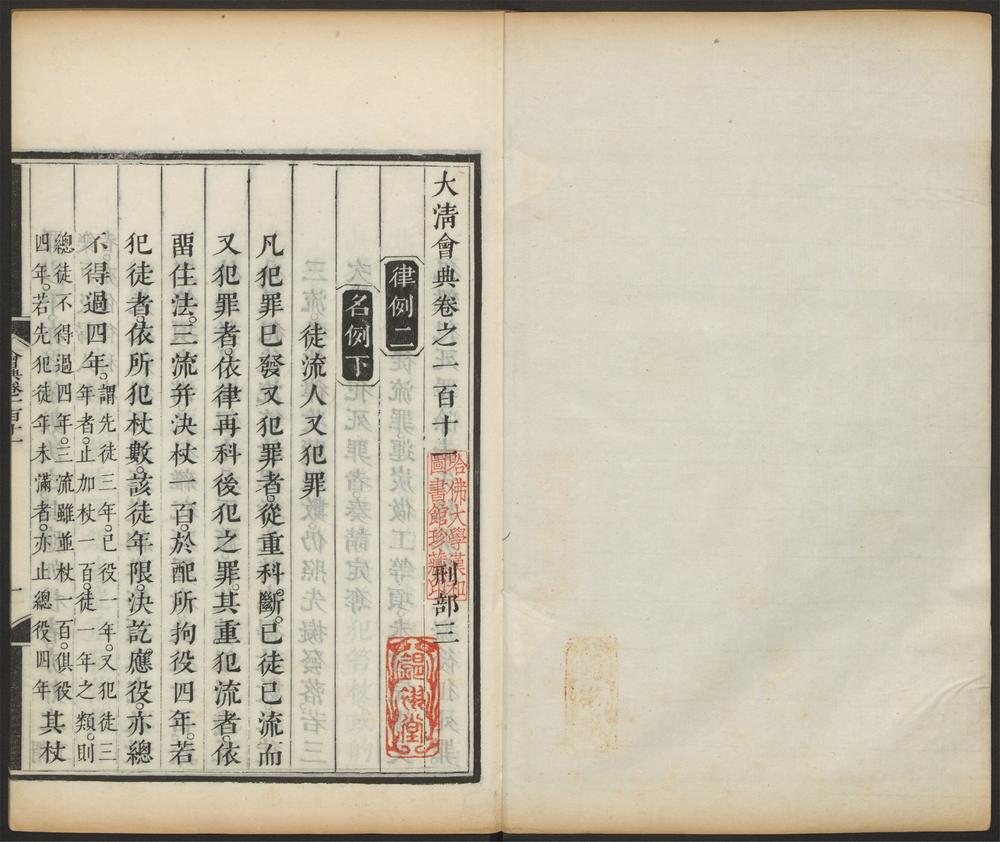 大淸會典卷之一百十一 刑部三
律例二
名例下
徒流人又犯罪
凡犯罪已發又犯罪者。從重科斷。已徒已流而
又犯罪者。依律再科後犯之罪。其重犯流者。依
畱住法。三流并决杖一百。於配所拘役四年。若
犯徒者。依所犯杖數。該徒年限。決訖應役。亦總
不得過四年。謂先徒三年。已役一年。又犯徒三
年者。止加杖一百。徒一年之類。則
總徒不得過四年。三流雖並杖一百。俱役
四年。若先犯徒年未滿者。亦止總役四年 其杖
哈佛大學漢和
圖書館珍藏印
會典卷一百十一
一